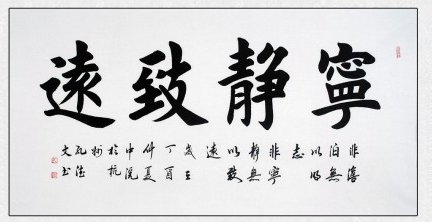 寧靜致遠
非澹
泊無
以明
志
非寧
靜無
以致
遠
歲在
丁酉
仲夏
中浣
於杭
州
文书